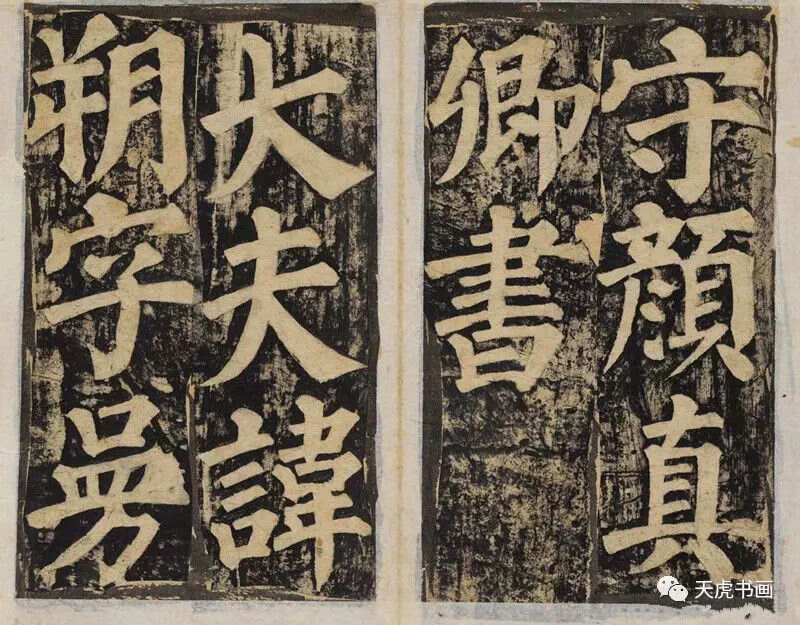 守顏真
卿書
大夫諱
朔字曼
天虎书画